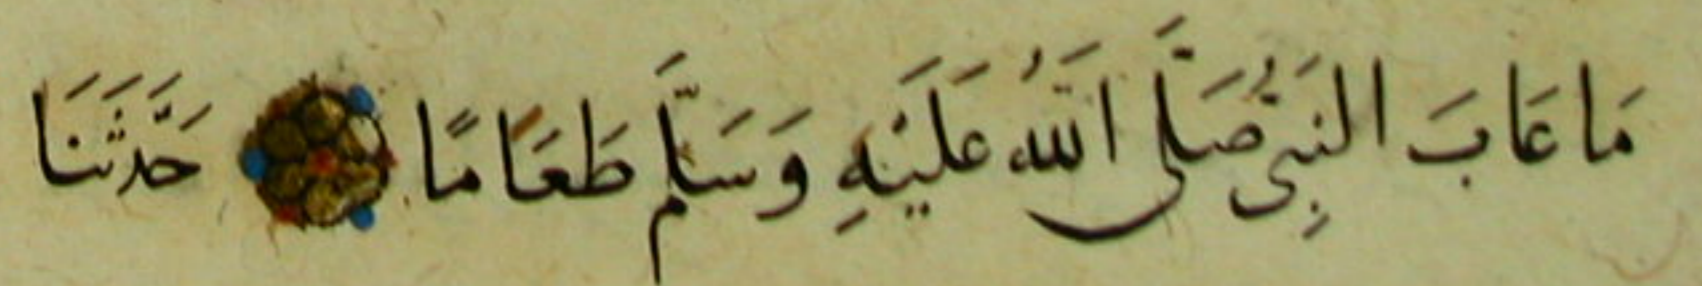 مَا عَابَ النَبِيُّ صَلَّى اَللَّهُ عَلَيْهِ وَسَلَّمَ طَعَامًا حَدَّثَنَا